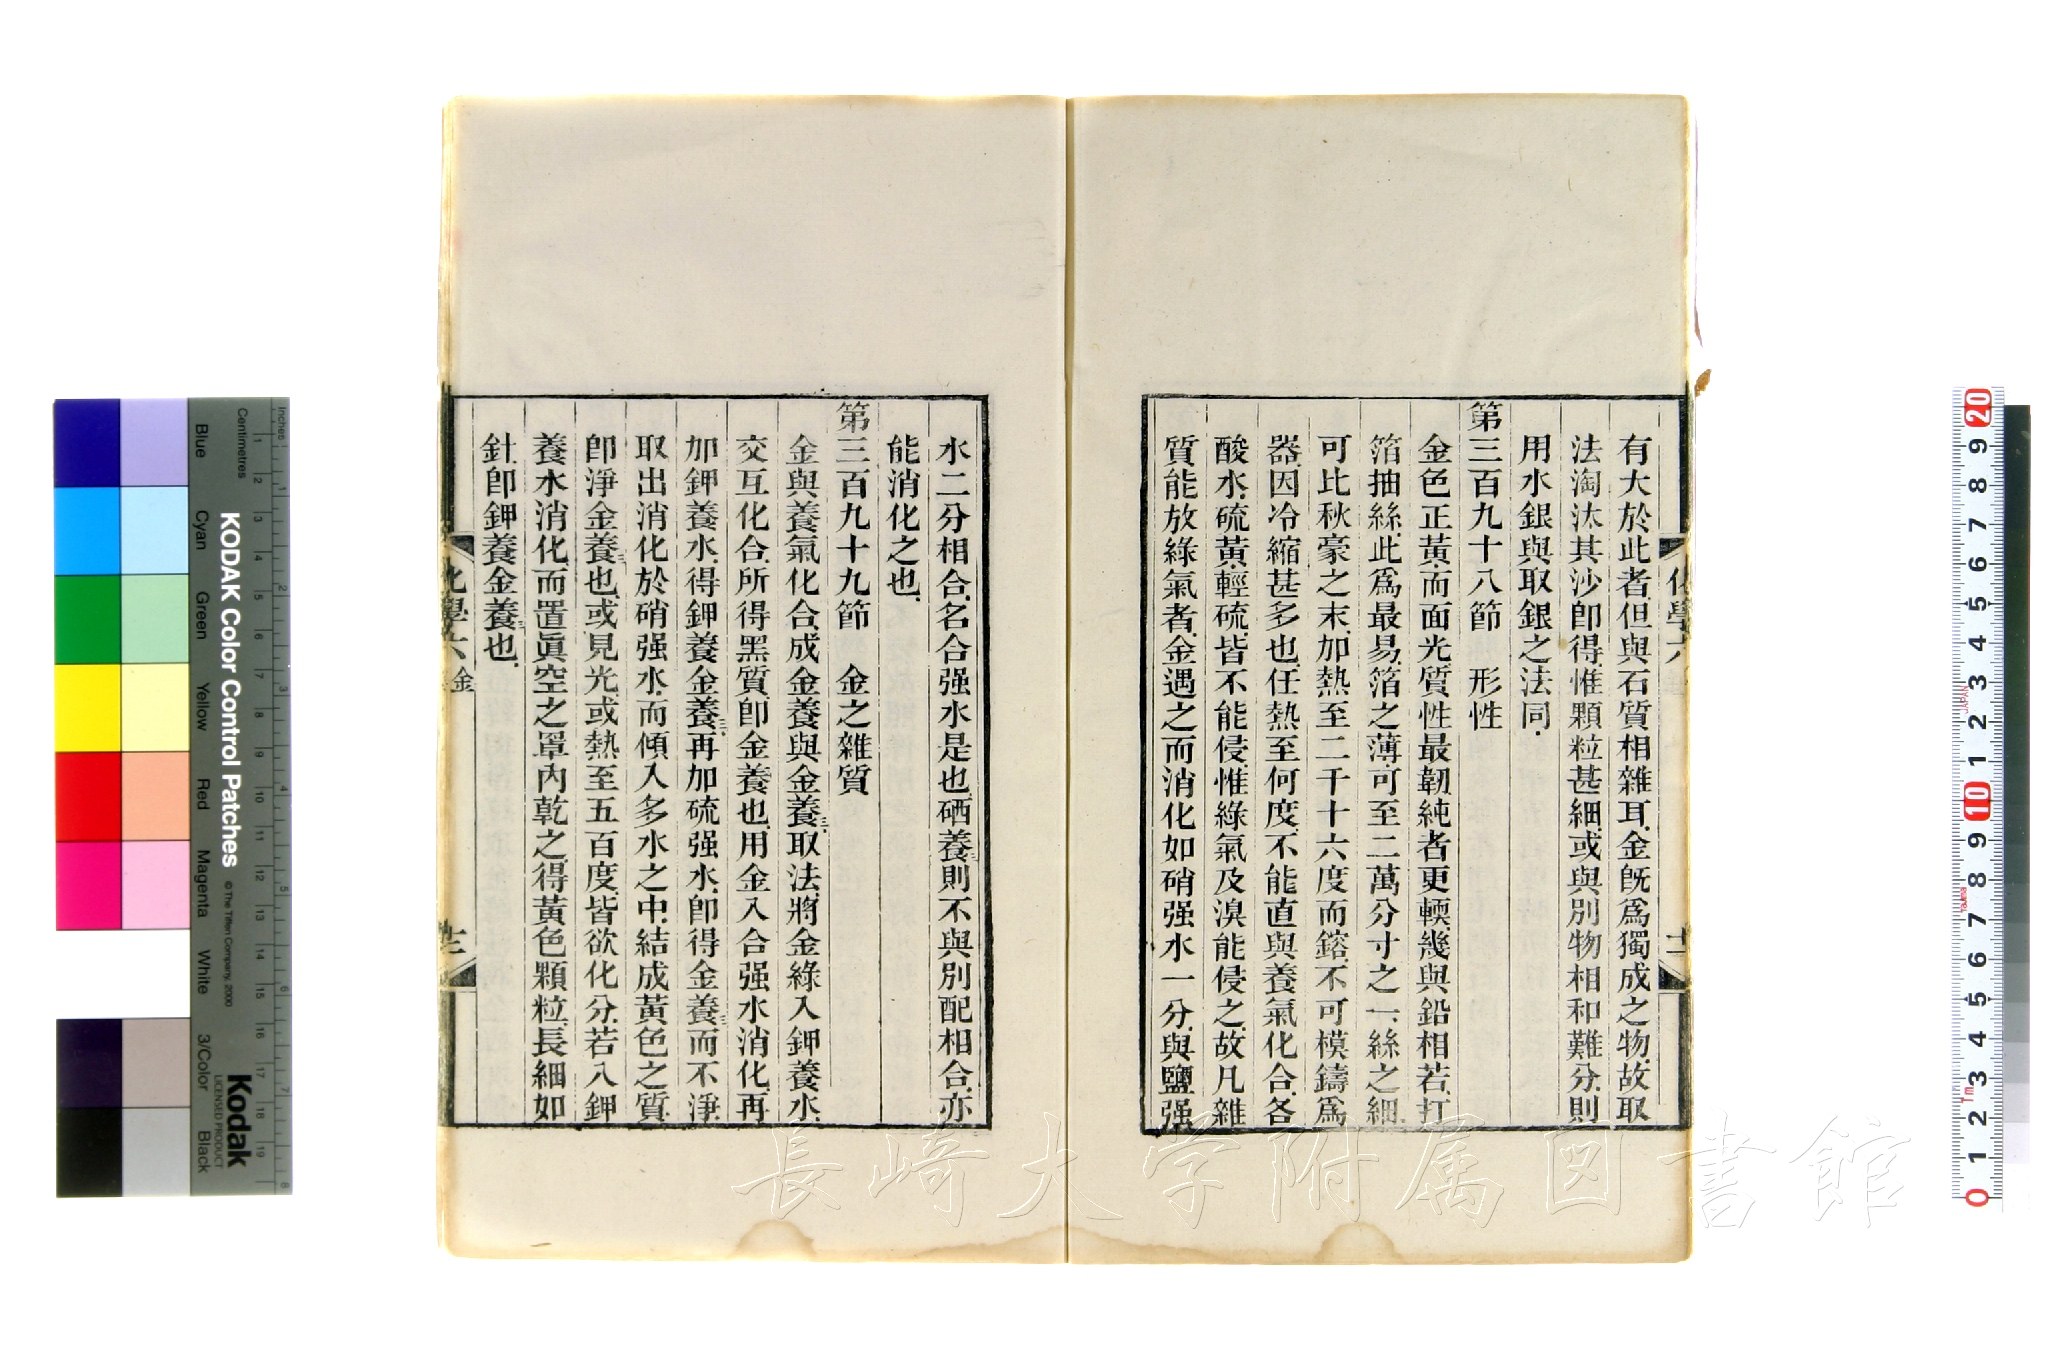 有大於此者但與石質相雜耳金旣爲獨成之物故取
法淘汰其沙卽得惟顆粒甚細或與別物相和難分則
用水銀與取銀之法同
第三百九十八節　形性
金色正黃而面光質性最韌純者更輭幾與鉛相若打
箔抽絲此爲最易箔之薄可至二萬分寸之一絲之細
可比秋豪之末加熱至二千十六度而鎔不可模鑄爲
器因冷縮甚多也任熱至何度不能直與養氣化合各
酸水硫黃輕硫皆不能侵惟綠氣及溴能侵之故凡雜
質能放綠氣者金遇之而消化如硝强水一分與鹽强
化學六
十一
水二分相合名合强水是也硒養則不與別配相合亦
能消化之也
第三百九十九節　金之雜質
金與養氣化合成金養與金養三取法將金綠入鉀養水
交互化合所得黑質卽金養也用金入合强水消化再
加鉀養水得鉀養金養三再加硫强水卽得金養三而不淨
取出消化於硝强水而傾入多水之中結成黃色之質
卽淨金養三也或見光或熱至五百度皆欲化分若入鉀
養水消化而置眞空之罩內乾之得黃色顆粒長細如
針卽鉀養金養三也
化學六 金
KODAK Color Control Patches
© The Tiffen Company, 2000
Kodak
LICENSED PRODUCT
Inches
Centimetres
Blue
Cyan
Green
Yellow
Red
Magenta
White
3/Color
Black
1 2 3 4 5 6 7 8 9 10 11 12 13 14 15 16 17 18 19
20 9 8 7 6 5 4 3 2 1 10 9 8 7 6 5 4 3 2 1 0
JAPAN
長崎大学附属図書館